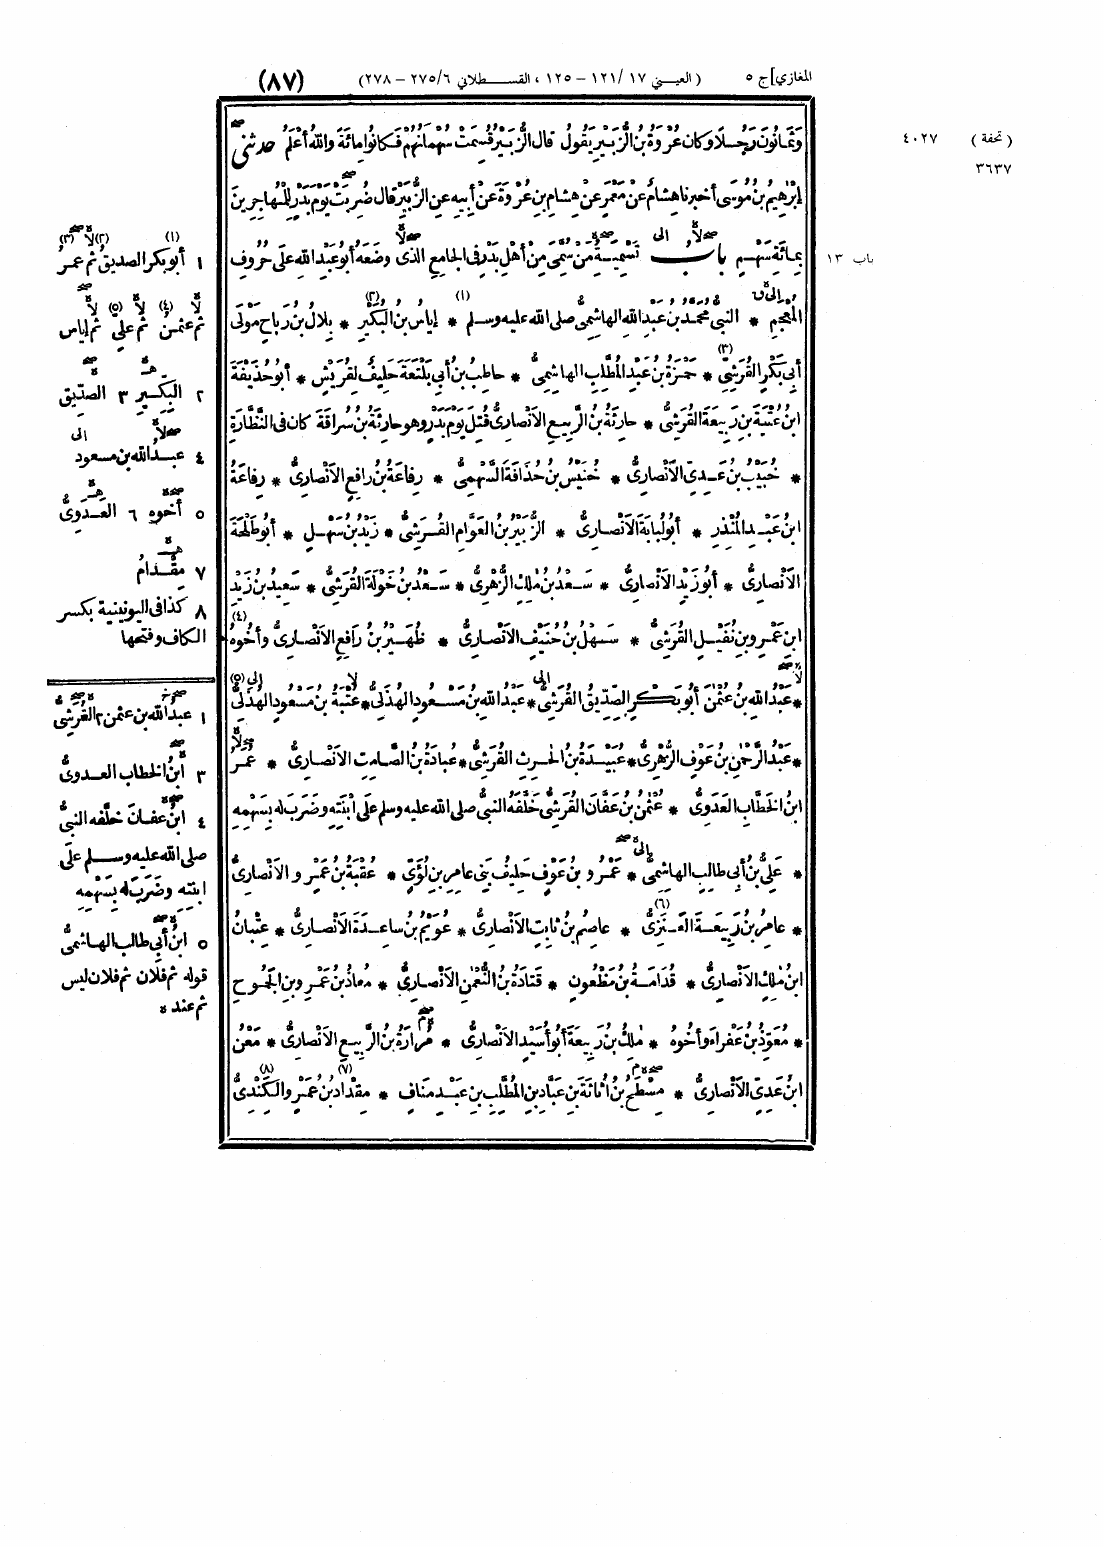 المغازي] ج ٥ (العيني ١٧ /١٢١ - ١٢٥ ، القسطلاني ٦/ ٢٧٥ - ٢٧٨) (٨٧)
(تحفة) ٤٠٢٧
٣٦٣٧
باب ١٣
وَثَمَانُونَ رَجُلًا وَكَانَ عُرْوَةُ بْنُ الزُّبَيْرِ يَقُولُ قَالَ الزُّبَيْرُ قُسِمَتْ سُهْمَانُهُمْ فَكَانُوا مِائَةً وَاللهُ أَعْلَمُ حدثني
إِبْرَاهِيمُ بْنُ مُوسَى أخبرنا هِشَامٌ عَنْ مَعْمَرٍ عَنْ هِشَامِ بْنِ عُرْوَةَ عَنْ أَبِيهِ عَنِ الزُّبَيْرِ قَالَ ضُرِبَتْ يَوْمَ بَدْرٍ لِلْمُهَاجِرِينَ
بِمِائَةِ سَهْمٍ باب تَسْمِيَةُ مَنْ سُمِّيَ مِنْ أَهْلِ بَدْرٍ فِي الجَامِعِ الذي وَضَعَهُ أَبُو عَبْدِ اللهِ عَلَى حُرُوفِ
المُعْجَمِ * النبي مُحَمَّدُ بْنُ عَبْدِ اللهِ الهَاشِمِيُّ صلى الله عليه وسلم (١) * إِيَاسُ بْنُ البُكَيْرِ (٢) * بِلَالُ بْنُ رَبَاحٍ مَوْلَى
أَبِي بَكْرٍ القُرَشِيِّ (٣) * حَمْزَةُ بْنُ عَبْدِ المُطَّلِبِ الهَاشِمِيُّ * حَاطِبُ بْنُ أَبِي بَلْتَعَةَ حَلِيفٌ لِقُرَيْشٍ * أَبُو حُذَيْفَةَ
ابْنُ عُتْبَةَ بْنِ رَبِيعَةَ القُرَشِيُّ * حَارِثَةُ بْنُ الرَّبِيعِ الأَنْصَارِيُّ قُتِلَ يَوْمَ بَدْرٍ وهو حَارِثَةُ بْنُ سُرَاقَةَ كان في النَّظَّارَةِ
* خُبَيْبُ بْنُ عَدِيٍّ الأَنْصَارِيُّ * خُنَيْسُ بْنُ حُذَافَةَ السَّهْمِيُّ * رِفَاعَةُ بْنُ رَافِعٍ الأَنْصَارِيُّ * رِفَاعَةُ
ابْنُ عَبْدِ المُنْذِرِ * أَبُو لُبَابَةَ الأَنْصَارِيُّ * الزُّبَيْرُ بْنُ العَوَّامِ القُرَشِيُّ * زَيْدُ بْنُ سَهْلٍ * أَبُو طَلْحَةَ
الأَنْصَارِيُّ * أَبُو زَيْدٍ الأَنْصَارِيُّ * سَعْدُ بْنُ مٰلِكٍ الزُّهْرِيُّ * سَعْدُ بْنُ خَوْلَةَ القُرَشِيُّ * سَعِيدُ بْنُ زَيْدِ
ابْنِ عَمْرِو بْنِ نُفَيْلٍ القُرَشِيُّ * سَهْلُ بْنُ حُنَيْفٍ الأَنْصَارِيُّ * ظُهَيْرُ بْنُ رَافِعٍ الأَنْصَارِيُّ وَأَخُوهُ (٤)
* عَبْدُ اللهِ بْنُ عُثْمٰنَ أَبُو بَكْرٍ الصِّدِّيقُ القُرَشِيُّ * عَبْدُ اللهِ بْنُ مَسْعُودٍ الهُذَلِيُّ * عُتْبَةُ بْنُ مَسْعُودٍ الهُذَلِيُّ (٥)
* عَبْدُ الرَّحْمٰنِ بْنُ عَوْفٍ الزُّهْرِيُّ * عُبَيْدَةُ بْنُ الحٰرِثِ القُرَشِيُّ * عُبَادَةُ بْنُ الصَّامِتِ الأَنْصَارِيُّ * عُمَرُ
ابْنُ الخَطَّابِ العَدَوِيُّ * عُثْمٰنُ بْنُ عَفَّانَ القُرَشِيُّ خَلَّفَهُ النبيُّ صلى الله عليه وسلم عَلَى ابْنَتِهِ وَضَرَبَ له بِسَهْمِهِ
* عَلِيُّ بْنُ أَبِي طَالِبٍ الهَاشِمِيُّ * عَمْرُو بْنُ عَوْفٍ حَلِيفُ بَنِي عَامِرِ بْنِ لُؤَيٍّ * عُقْبَةُ بْنُ عَمْرٍو الأَنْصَارِيُّ
* عَامِرُ بْنُ رَبِيعَةَ العَنَزِيُّ (٦) * عَاصِمُ بْنُ ثَابِتٍ الأَنْصَارِيُّ * عُوَيْمُ بْنُ سَاعِدَةَ الأَنْصَارِيُّ * عِتْبَانُ
ابْنُ مٰلِكٍ الأَنْصَارِيُّ * قُدَامَةُ بْنُ مَظْعُونٍ * قَتَادَةُ بْنُ النُّعْمٰنِ الأَنْصَارِيُّ * مُعَاذُ بْنُ عَمْرِو بْنِ الجَمُوحِ
* مُعَوِّذُ بْنُ عَفْرَاءَ وَأَخُوهُ * مٰلِكُ بْنُ رَبِيعَةَ أَبُو أُسَيْدٍ الأَنْصَارِيُّ * مُرَارَةُ بْنُ الرَّبِيعِ الأَنْصَارِيُّ * مَعْنُ
ابْنُ عَدِيٍّ الأَنْصَارِيُّ * مِسْطَحُ بْنُ أُثَاثَةَ بْنِ عَبَّادِ بْنِ المُطَّلِبِ بْنِ عَبْدِ مَنَافٍ * مِقْدَادُ (٧) بْنُ عَمْرٍو الكِنْدِيُّ (٨)
١ أبو بكر الصديقُ ثم عمرُ
ثم عثمٰنُ ثم عليٌّ ثم إياس
٢ البكير ٣ الصدّيق
٤ عبد الله بن مسعود
٥ أخوه ٦ العدوىُّ
٧ مِقْدامُ
٨ كذا في اليونينية بكسر
الكاف وفتحها
١ عبد الله بن عثمن ٢ القُرَشِيُّ
٣ ابنُ الخطاب العدوىُّ
٤ ابنُ عفانَ خلَّفه النبيُّ
صلى الله عليه وسلم على
ابنته وضَرَبَ له بسَهْمِه
٥ ابنُ أبي طالب الهاشميُّ
قوله ثم فلان ثم فلان ليس
ثم عند ه